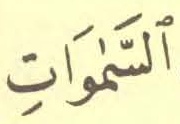 ٱلسَّمَٰوَاتِ